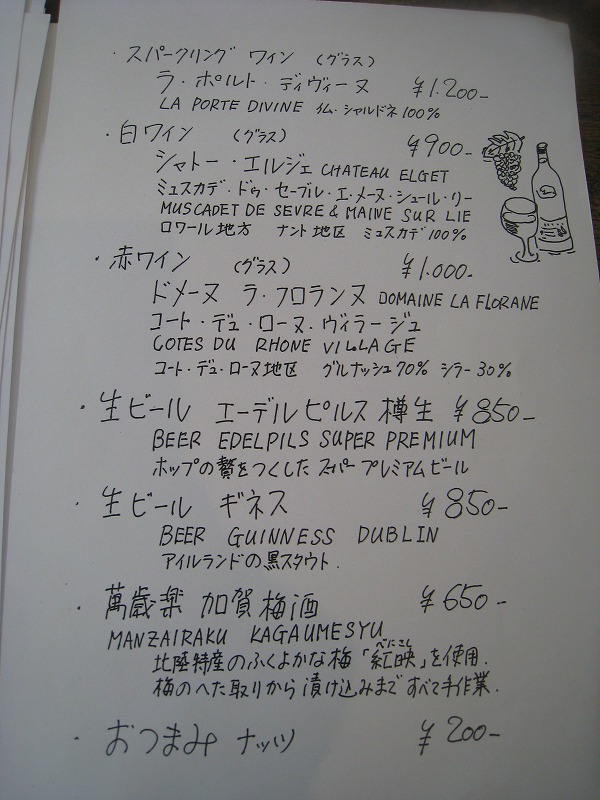 ・スパークリング ワイン (グラス)
ラ・ポルト・ディヴィーヌ ¥1.200-
LA PORTE DIVINE シャルドネ 100%
・白ワイン (グラス) ¥900-
シャトー・エルジェ CHATEAU ELGET
ミュスカデ・ドゥ・セーブル・エ・メーヌ・シュール・リー
MUSCADET DE SEVRE & MAINE SUR LIE
ロワール地方 ナント地区 ミュスカデ100%
・赤ワイン (グラス) ¥1.000-
ドメーヌ ラ・フロランヌ DOMAINE LA FLORANE
コート・デュ・ローヌ・ヴィラージュ
COTES DU RHONE VILLAGE
コート・デュ・ローヌ地区 グルナッシュ70% シラー30%
・生ビール エーデルピルス 樽生 ¥850-
BEER EDELPILS SUPER PREMIUM
ホップの贅をつくした スーパープレミアムビール
・生ビール ギネス ¥850-
BEER GUINNESS DUBLIN
アイルランドの黒スタウト.
・萬歳楽 加賀梅酒 ¥650-
MANZAIRAKU KAGAUMESYU
北陸特産のふくよかな梅「紅映」を使用.
べにさし
梅のへた取りから漬け込みまですべて手作業.
・おつまみ ナッツ ¥200-